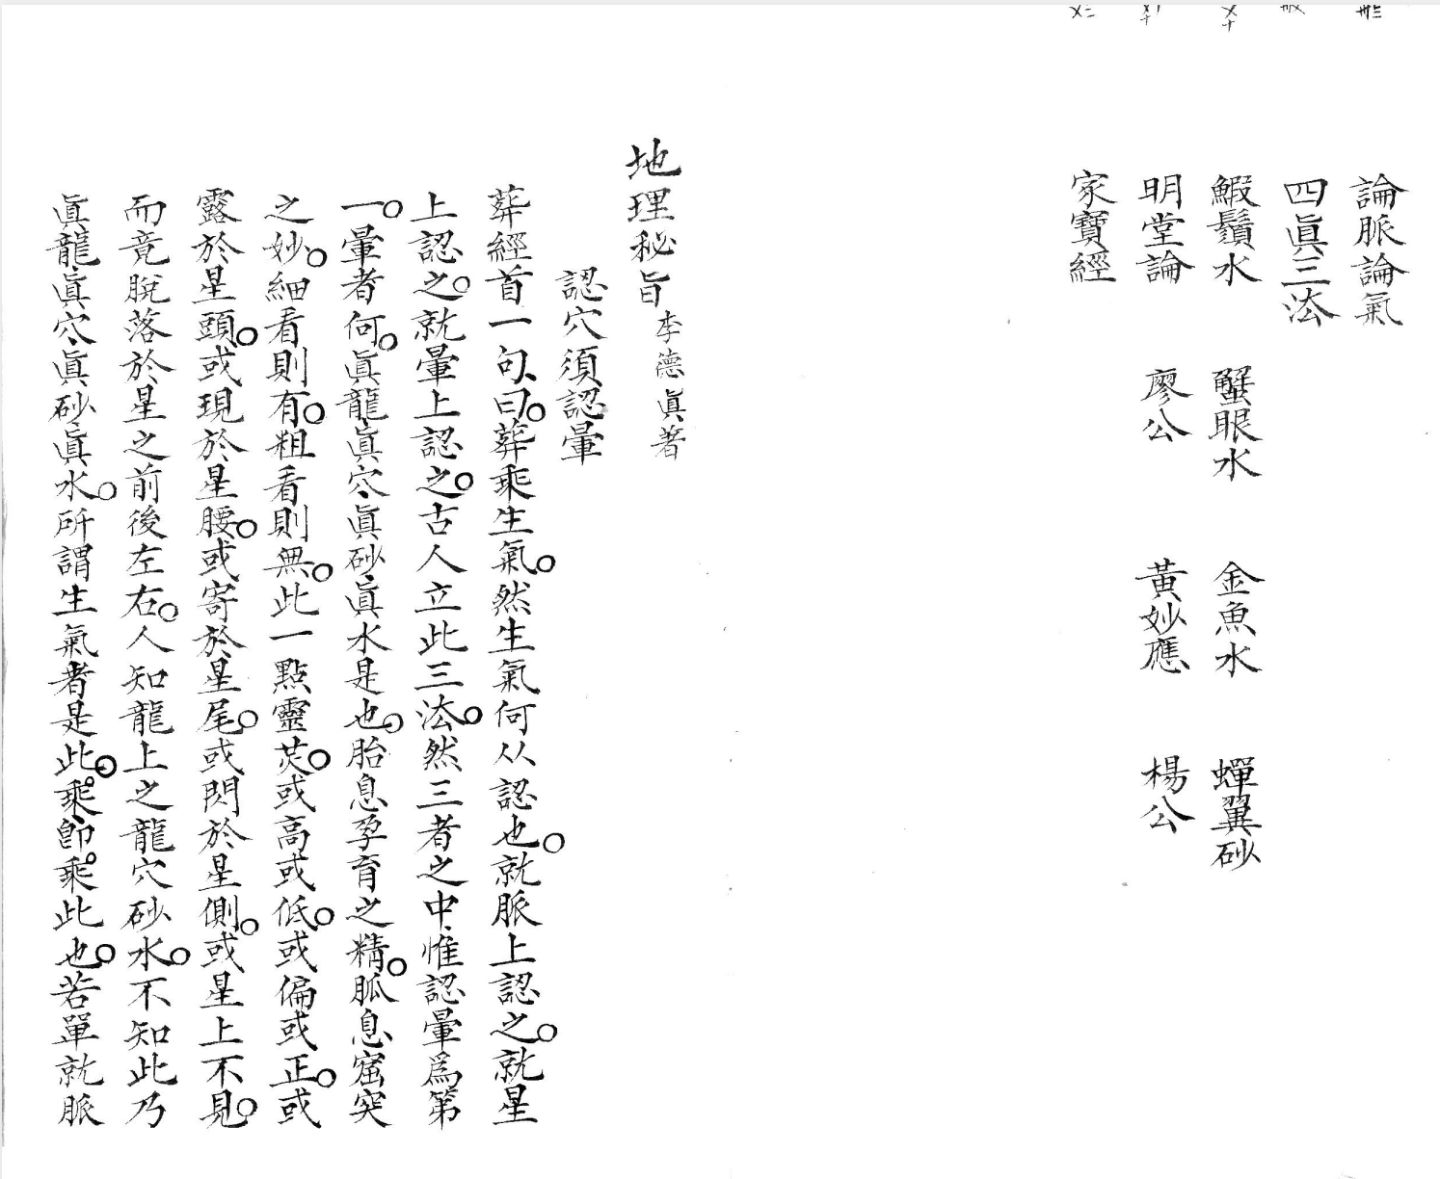 論脈論氣
四眞三法
鰕鬚水 蟹眼水 金魚水 蟬翼砂
明堂論 廖公 黃妙應 楊公
家寶經
地理秘旨 李德眞著
認穴須認暈
葬經首一句、曰。葬乘生氣。然生氣何从認也。就脈上認之。就星
上認之。就暈上認之。古人立此三法。然三者之中、惟認暈爲第
一。暈者何。眞龍、眞穴、眞砂、眞水是也。胎息孕育之精。胍息窟突
之妙。細看則有。粗看則無。此一點靈芡。或高或低。或偏或正。或
露於星頭。或現於星腰。或寄於星尾。或閃於星側。或星上不見。
而竟脫落於星之前後左右。人知龍上之龍穴砂水。不知此乃
眞龍、眞穴、眞砂、眞水。所謂生氣者是此。乘、卽乘此也。若單就脈